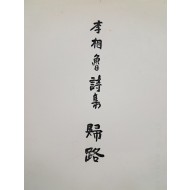 李相魯詩集 歸路